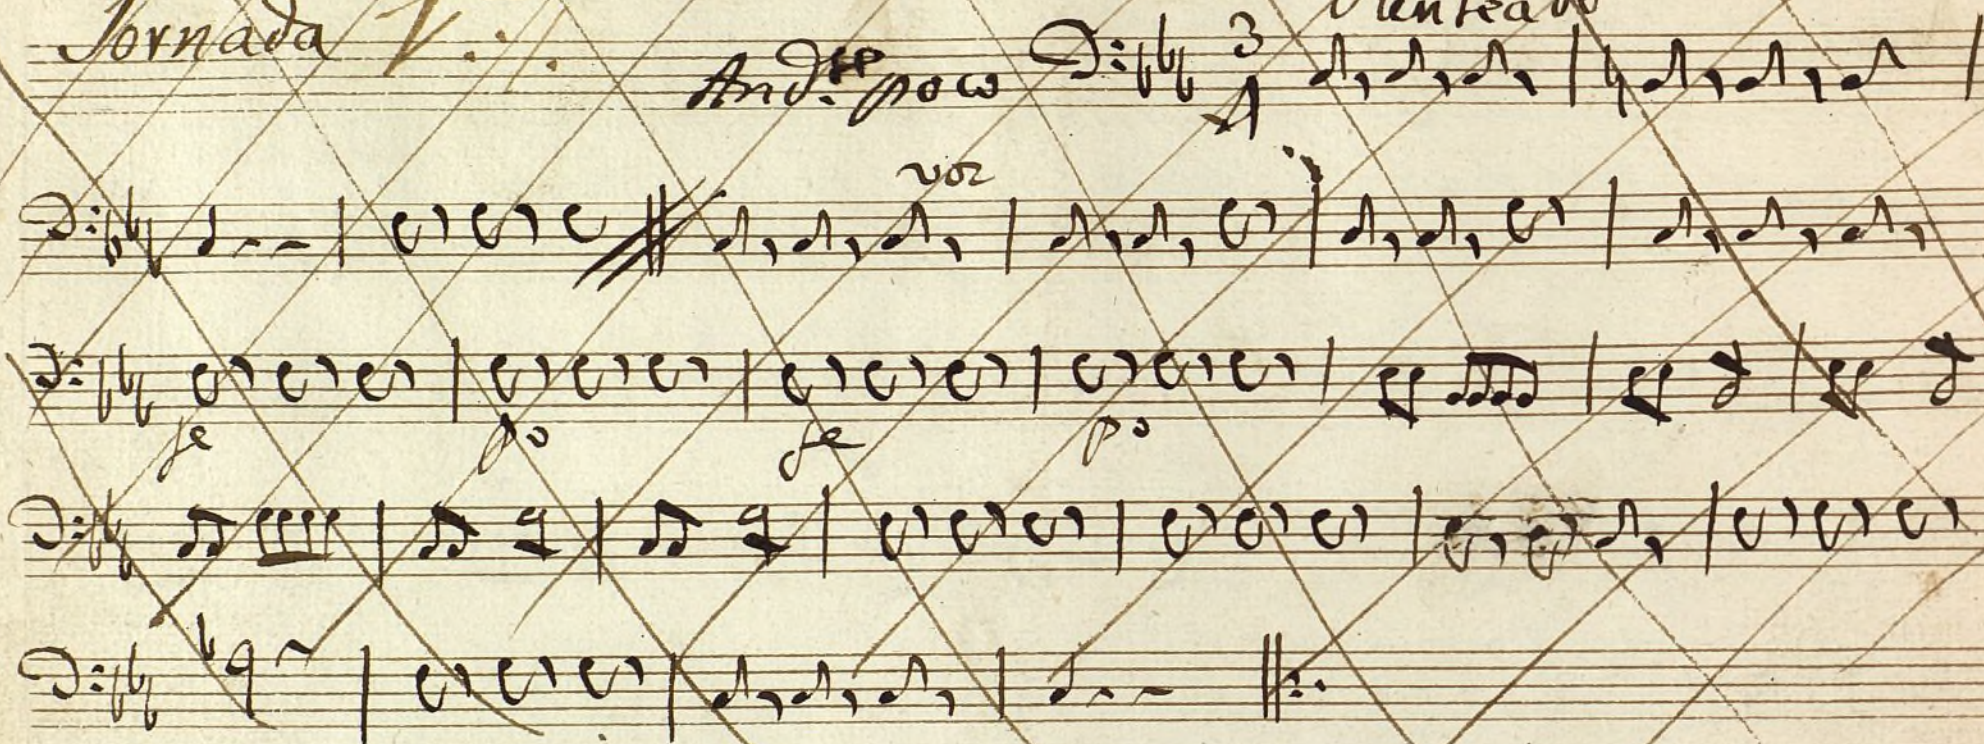 Jornada 1.ª
And.te poco
3
4
voz
fe
po
fe
po